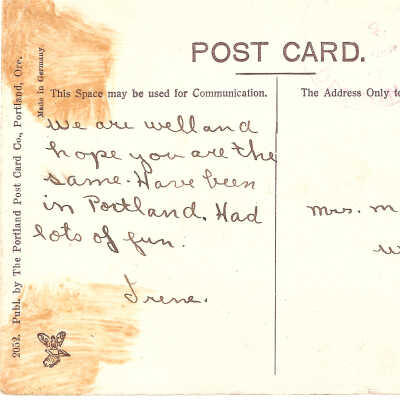 POST CARD.
This Space may be used for Communication.
The Address Only to
we are well and
hope you are the
same. Have been
in Portland. Had
lots of fun.
Irene.
Mrs. M
2052. Publ. by The Portland Post Card Co., Portland, Ore.
Made in Germany.